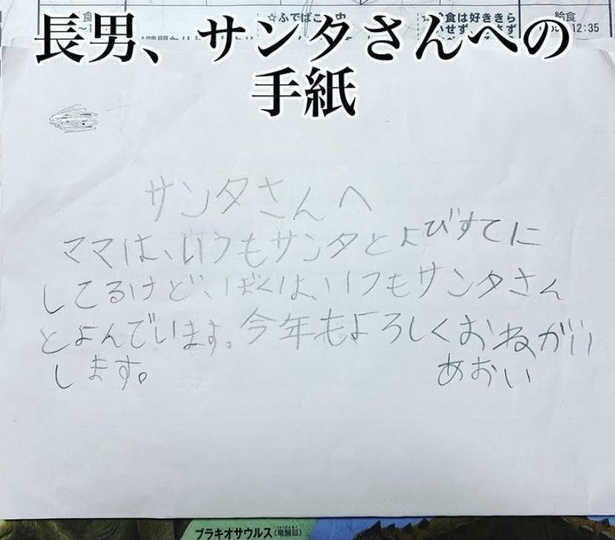 ☆ふでばこの中
給食
12:35
長男、サンタさんへの
手紙
サンタさんへ
ママは、いつもサンタとよびすてに
してるけど、ぼくは、いつもサンタさん
とよんでいます。今年もよろしくおねがい
します。
あおい
ブラキオサウルス(竜盤目)